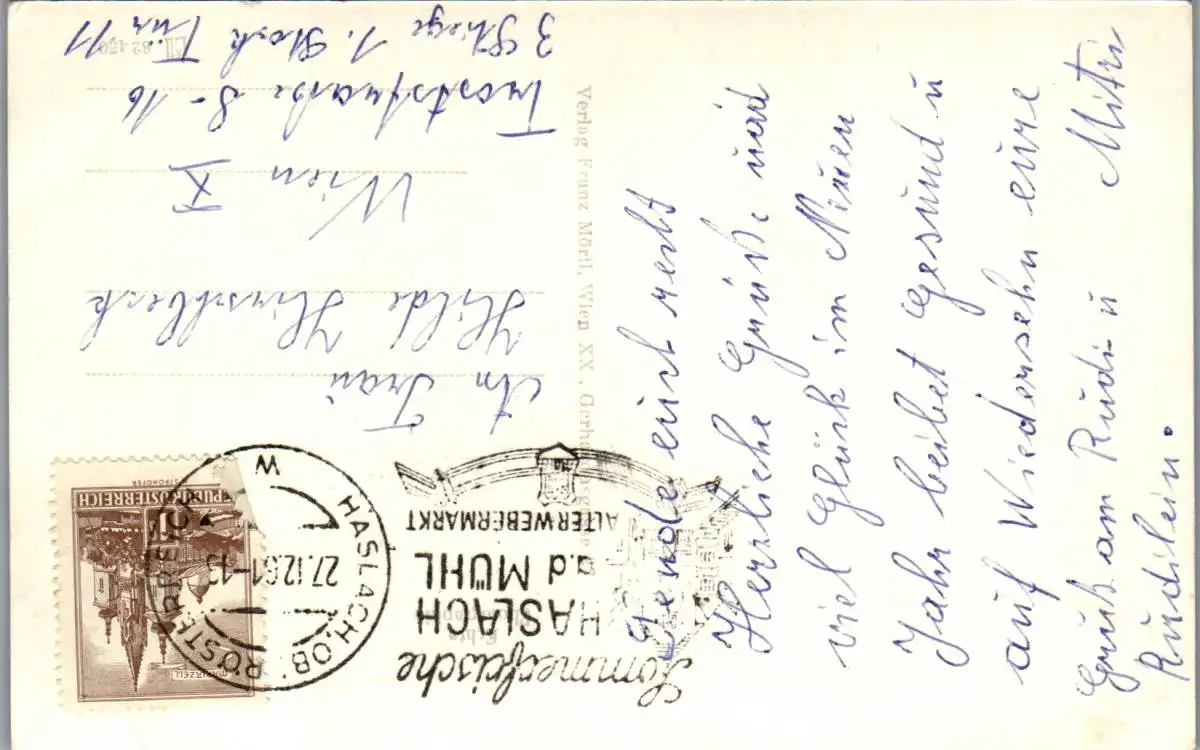 Sende eich recht
Herzliche Grüße und
viel Glück im Neuen
Jahr beibet Gesund u
auf Wiedersehn eure
Gruß am Rudi u Mitzi
Rudilein.
An Frau
Hilde Hirschbeck
Wien X
Troststraße 8-16
3 Stiege 1. Stock Tür 11
Verlag Franz Mörtl, Wien XX.
REPUBLIK ÖSTERREICH
STROHOFER
MARIAZELL
HASLACH, OB. ÖSTERREICH
27.12.61-13
Sommerfrische
HASLACH
a.d MÜHL
ALTER WEBERMARKT